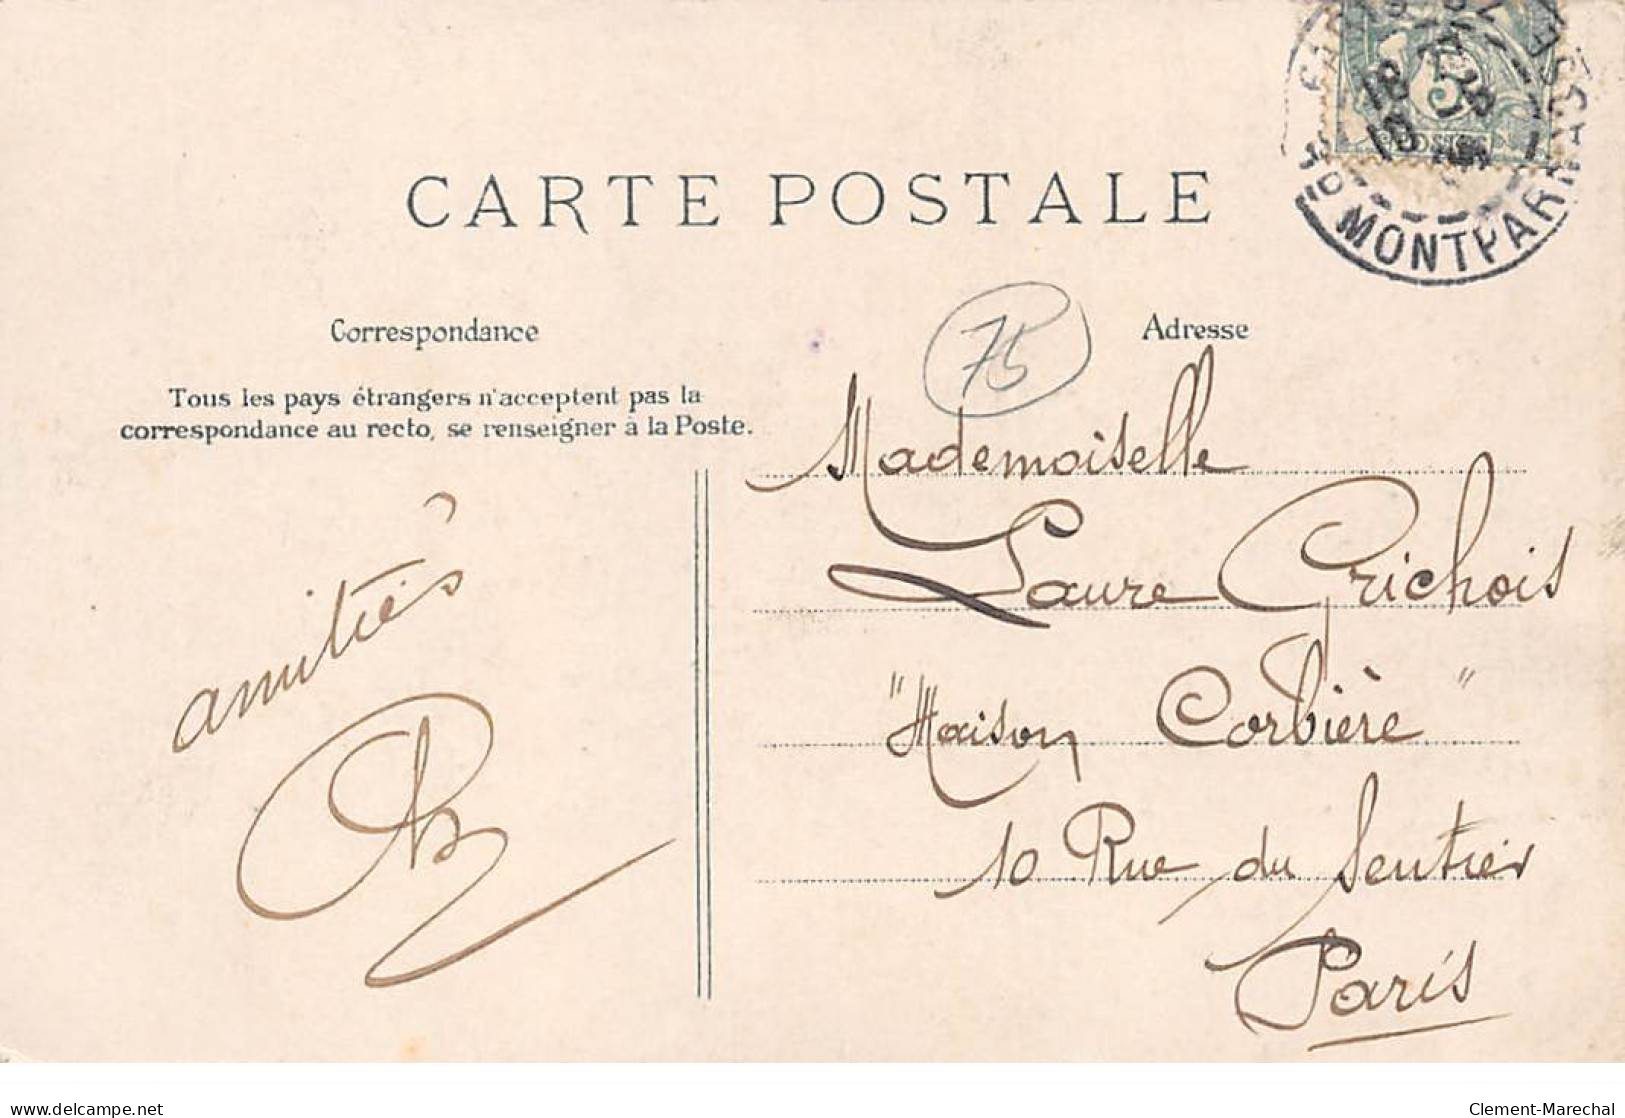 CARTE POSTALE
Correspondance
Adresse
75
Tous les pays étrangers n'acceptent pas la
correspondance au recto, se renseigner à la Poste.
Mademoiselle
Laure Crichois
"Maison Corbière"
10 Rue du Sentier
Paris
amitiés
5
POSTES
MONTPARNASSE
delcampe.net
Clement-Marechal